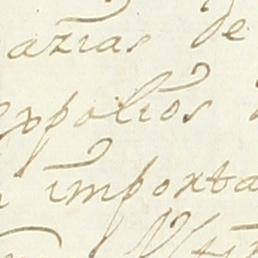 azias de
expolios
importa